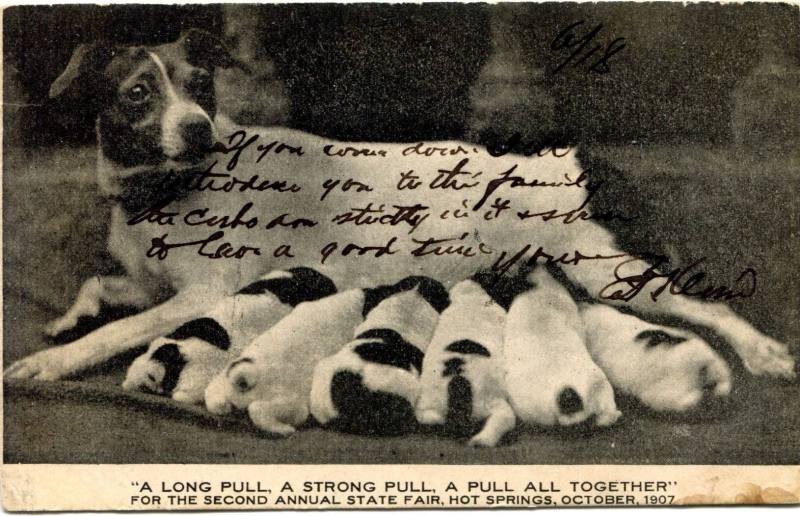 6/18
If you come down I'll
introduce you to the family
the cubs are strictly in it & seem
to have a good time Yours
"A LONG PULL, A STRONG PULL, A PULL ALL TOGETHER"
FOR THE SECOND ANNUAL STATE FAIR, HOT SPRINGS, OCTOBER, 1907